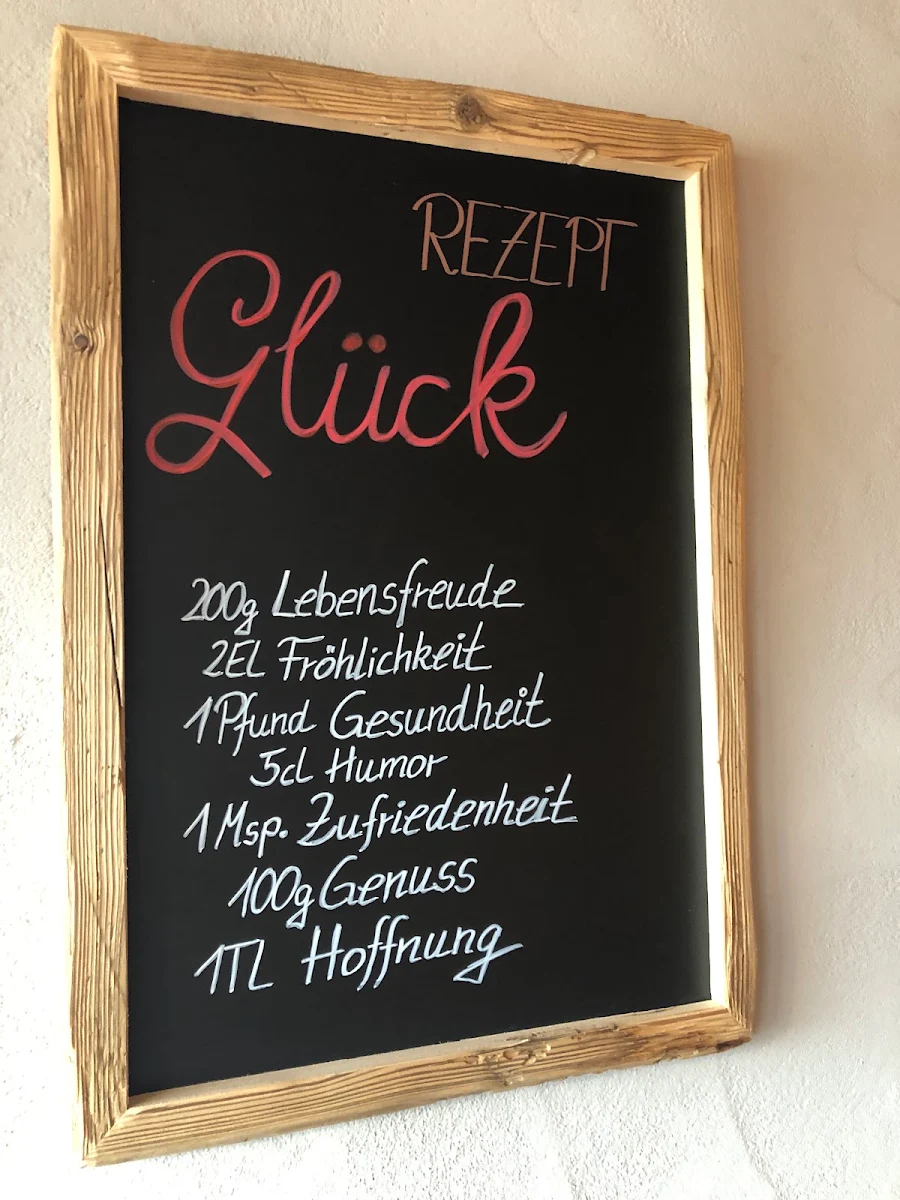 REZEPT
Glück
200g Lebensfreude
2EL Fröhlichkeit
1Pfund Gesundheit
5cl Humor
1Msp. Zufriedenheit
100g Genuss
1TL Hoffnung